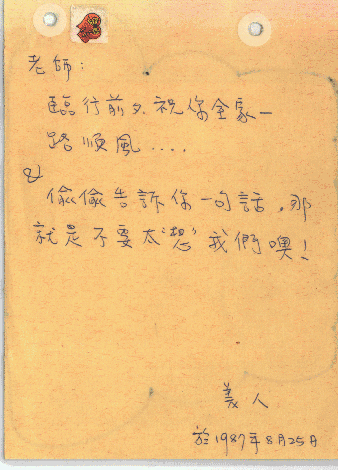 老師：
臨行前夕，祝你全家一
路順風....
&
偷偷告訴你一句話，那
就是不要太"想"我們噢！
義人
於1987年8月25日